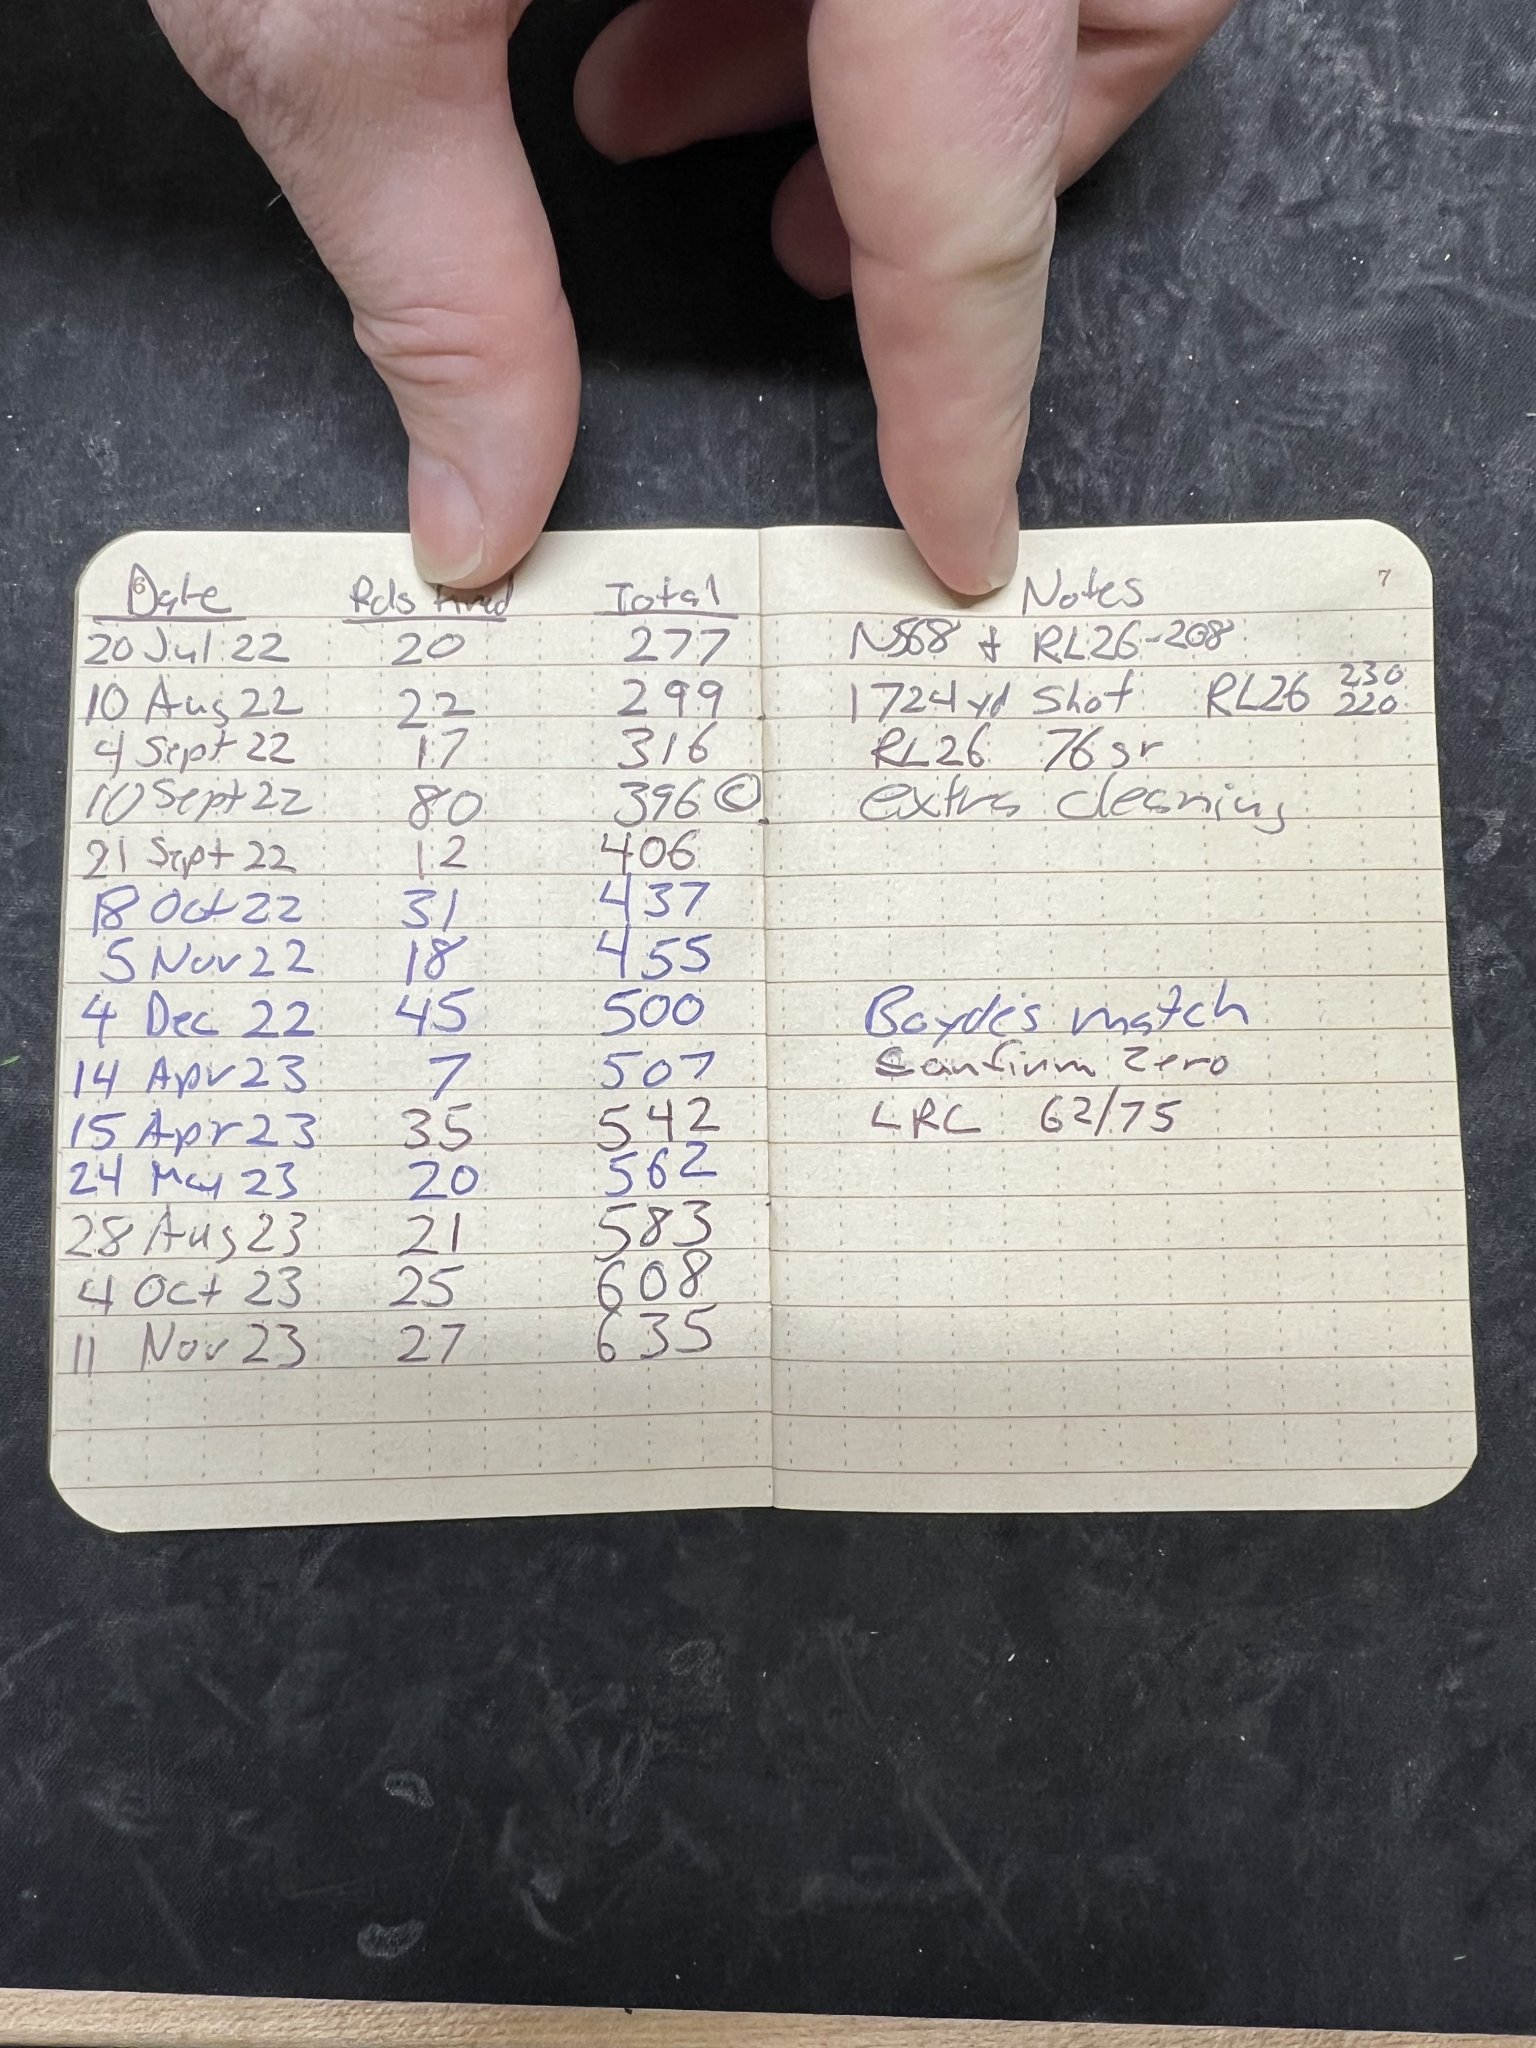 6
7
Date Rds fired Total Notes
20 Jul 22 20 277 N568 + RL26-208
10 Aug 22 22 299 1724 yd Shot RL26 230 220
4 Sept 22 17 316 RL26 76 gr
10 Sept 22 80 396 © extra cleaning
21 Sept 22 12 406
18 Oct 22 31 437
5 Nov 22 18 455
4 Dec 22 45 500 match
14 Apr 23 7 507 Confirm Zero
15 Apr 23 35 542 LRC 62/75
24 May 23 20 562
28 Aug 23 21 583
4 Oct 23 25 608
11 Nov 23 27 635